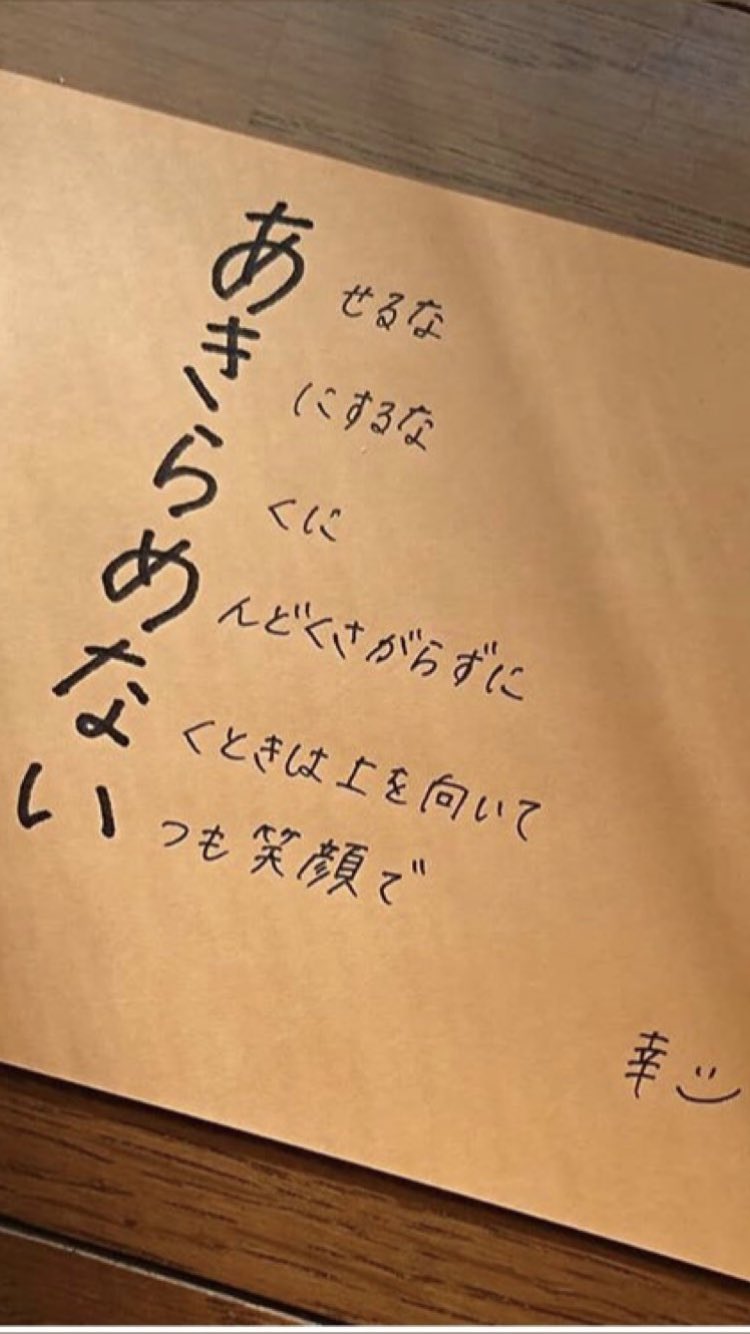 あせるな
きにするな
らくに
めんどくさがらずに
なくときは上を向いて
いつも笑顔で
幸